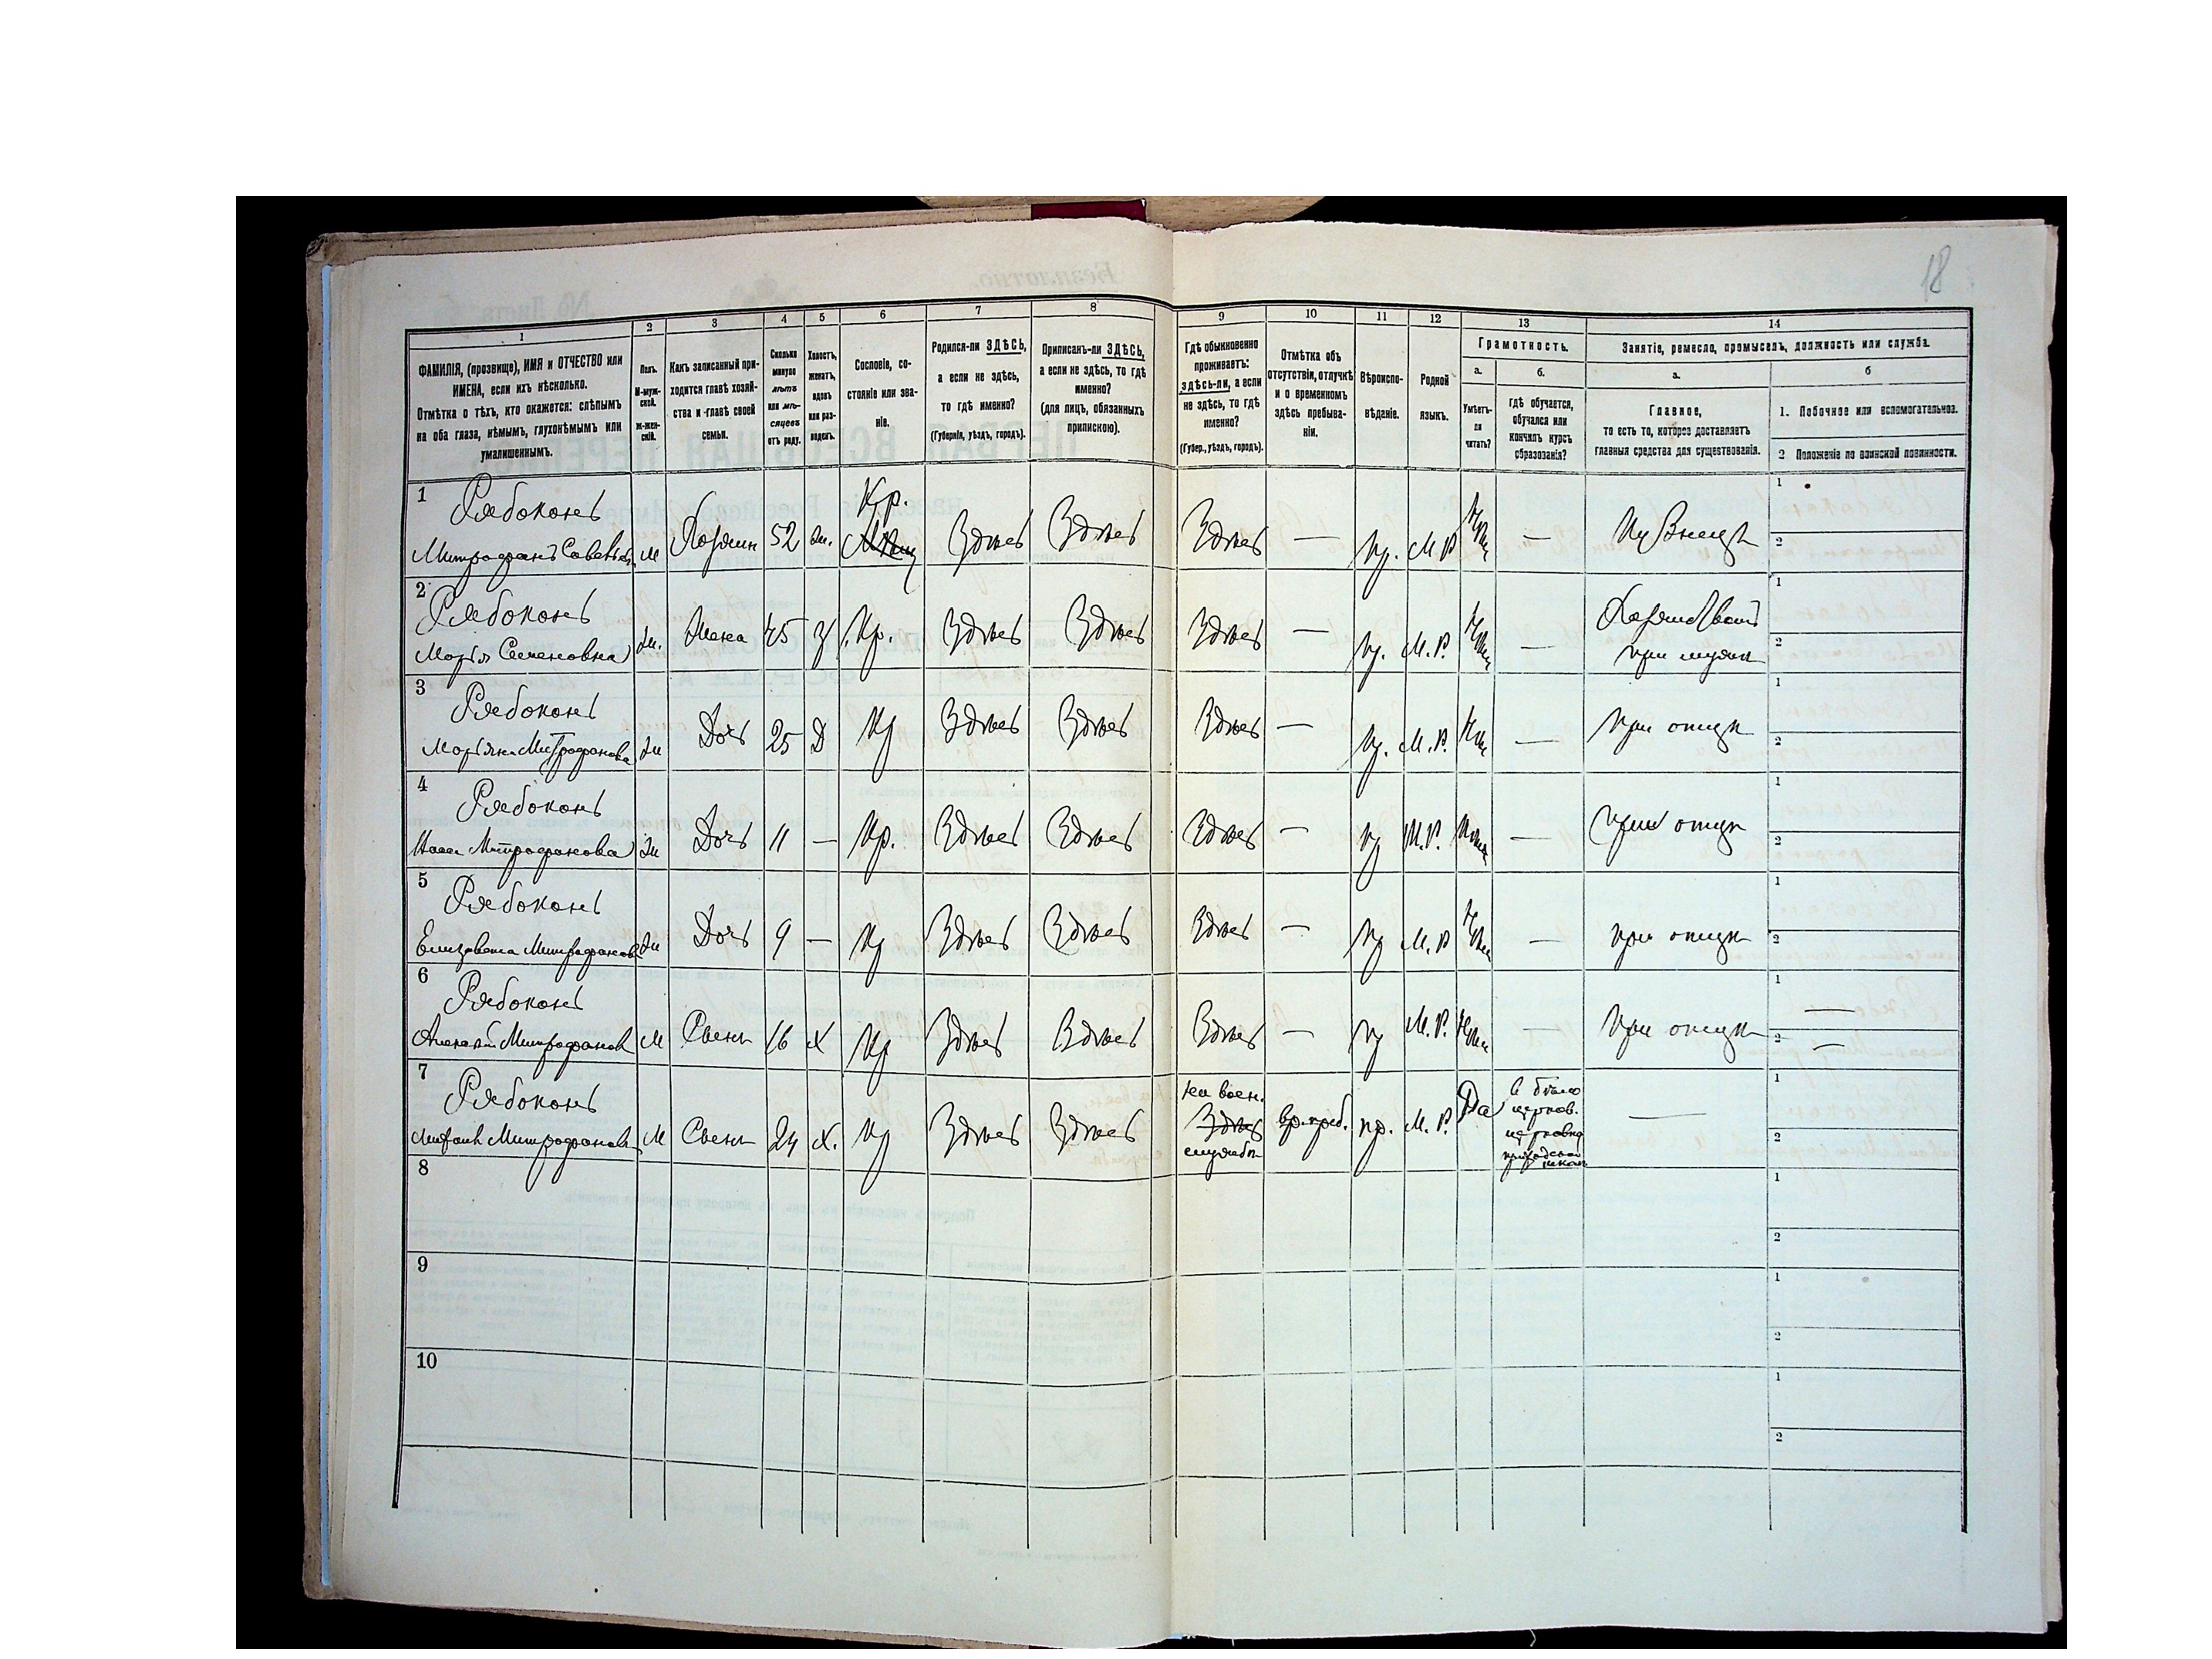 18
1 2 3 4 5 6 7 8 9 10 11 12 13 14
ФАМИЛІЯ, (прозвище), ИМЯ и ОТЧЕСТВО или
ИМЕНА, если ихъ нѣсколько.
Отмѣтка о тѣхъ, кто окажется: слѣпымъ
на оба глаза, нѣмымъ, глухонѣмымъ или
умалишеннымъ.
Полъ.
М-муж-
ской.
Ж-жен-
скій.
Какъ записанный при-
ходится главѣ хозяй-
ства и главѣ своей
семьи.
Сколько
минуло
лѣтъ
или мѣ-
сяцевъ
отъ роду.
Холостъ,
женатъ,
вдовъ
или раз-
веденъ.
Сословіе, со-
стояніе или зва-
ніе.
Родился-ли ЗДѢСЬ,
а если не здѣсь,
то гдѣ именно?
(Губернія, уѣздъ, городъ).
Приписанъ-ли ЗДѢСЬ,
а если не здѣсь, то гдѣ
именно?
(для лицъ, обязанныхъ
припискою).
Гдѣ обыкновенно
проживаетъ:
здѣсь-ли, а если
не здѣсь, то гдѣ
именно?
(Губер., уѣздъ, городъ).
Отмѣтка объ
отсутствіи, отлучкѣ
и о временномъ
здѣсь пребыва-
ніи.
Вѣроиспо-
вѣданіе.
Родной
языкъ.
Грамотность.
а.
Умѣетъ-
ли
читать?
б.
гдѣ обучается,
обучался или
кончилъ курсъ
образованія?
Занятіе, ремесло, промыселъ, должность или служба.
а.
Главное,
то есть то, которое доставляетъ
главныя средства для существованія.
б
1. Побочное или вспомогательное.
2 Положеніе по воинской повинности.
1 Рябоконь Кр. 1
Митрофанъ М Хозяин 52 Здѣсь Здѣсь Здѣсь — пр. М Р — 2
2 Рябоконь 1
Марія Семеновна Ж. Жена 45 З Кр. Здѣсь Здѣсь Здѣсь — пр. М. Р. — при мужѣ 2
3 Рябоконь 1
Митрофанова Ж Дочь 25 Д Кр Здѣсь Здѣсь Здѣсь — пр. М. Р. — При отцѣ 2
4 Рябоконь 1
Митрофанова Ж Дочь 11 — Кр. Здѣсь Здѣсь Здѣсь — пр М. Р. — При отцѣ 2
5 Рябоконь 1
Елизавета Митрофанов Ж Дочь 9 — Кр Здѣсь Здѣсь Здѣсь — пр М. Р — при отцѣ 2
6 Рябоконь 1 —
Митрофанов М Сынъ 16 Х Кр Здѣсь Здѣсь Здѣсь — пр М. Р. — При отцѣ 2 —
7 Рябоконь на воен. 1
Митрофанов М Сынъ 24 Х. Кр Здѣсь Здѣсь Здѣсь пр. М. Р. Да — 2
службѣ
8 1
2
9 1
2
10 1
2